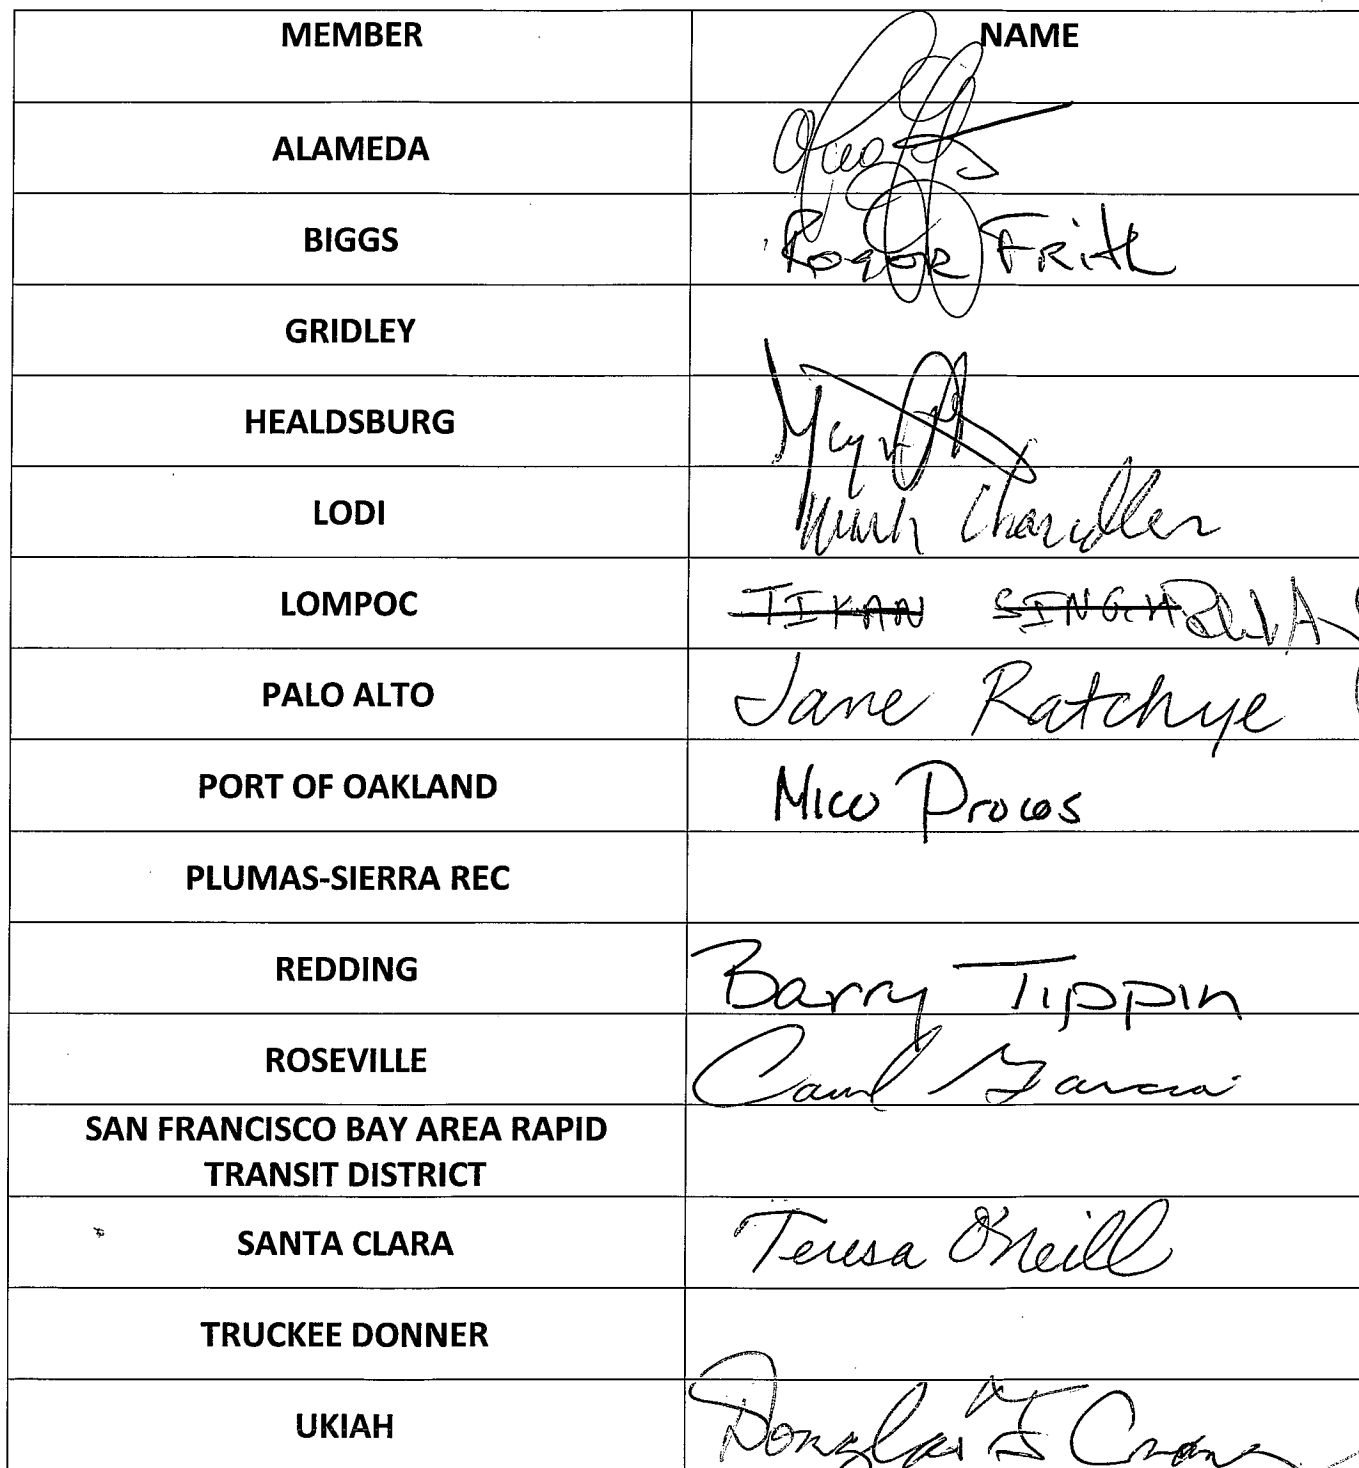 MEMBER NAME
ALAMEDA
BIGGS Roger Frith
GRIDLEY
HEALDSBURG
LODI Mark Chandler
LOMPOC TIKAN SINGH
PALO ALTO Jane Ratchye
PORT OF OAKLAND Mico Procos
PLUMAS-SIERRA REC
REDDING Barry Tippin
ROSEVILLE Carol Garcia
SAN FRANCISCO BAY AREA RAPID
TRANSIT DISTRICT
SANTA CLARA Teresa O'Neill
TRUCKEE DONNER
UKIAH Douglas F Crane